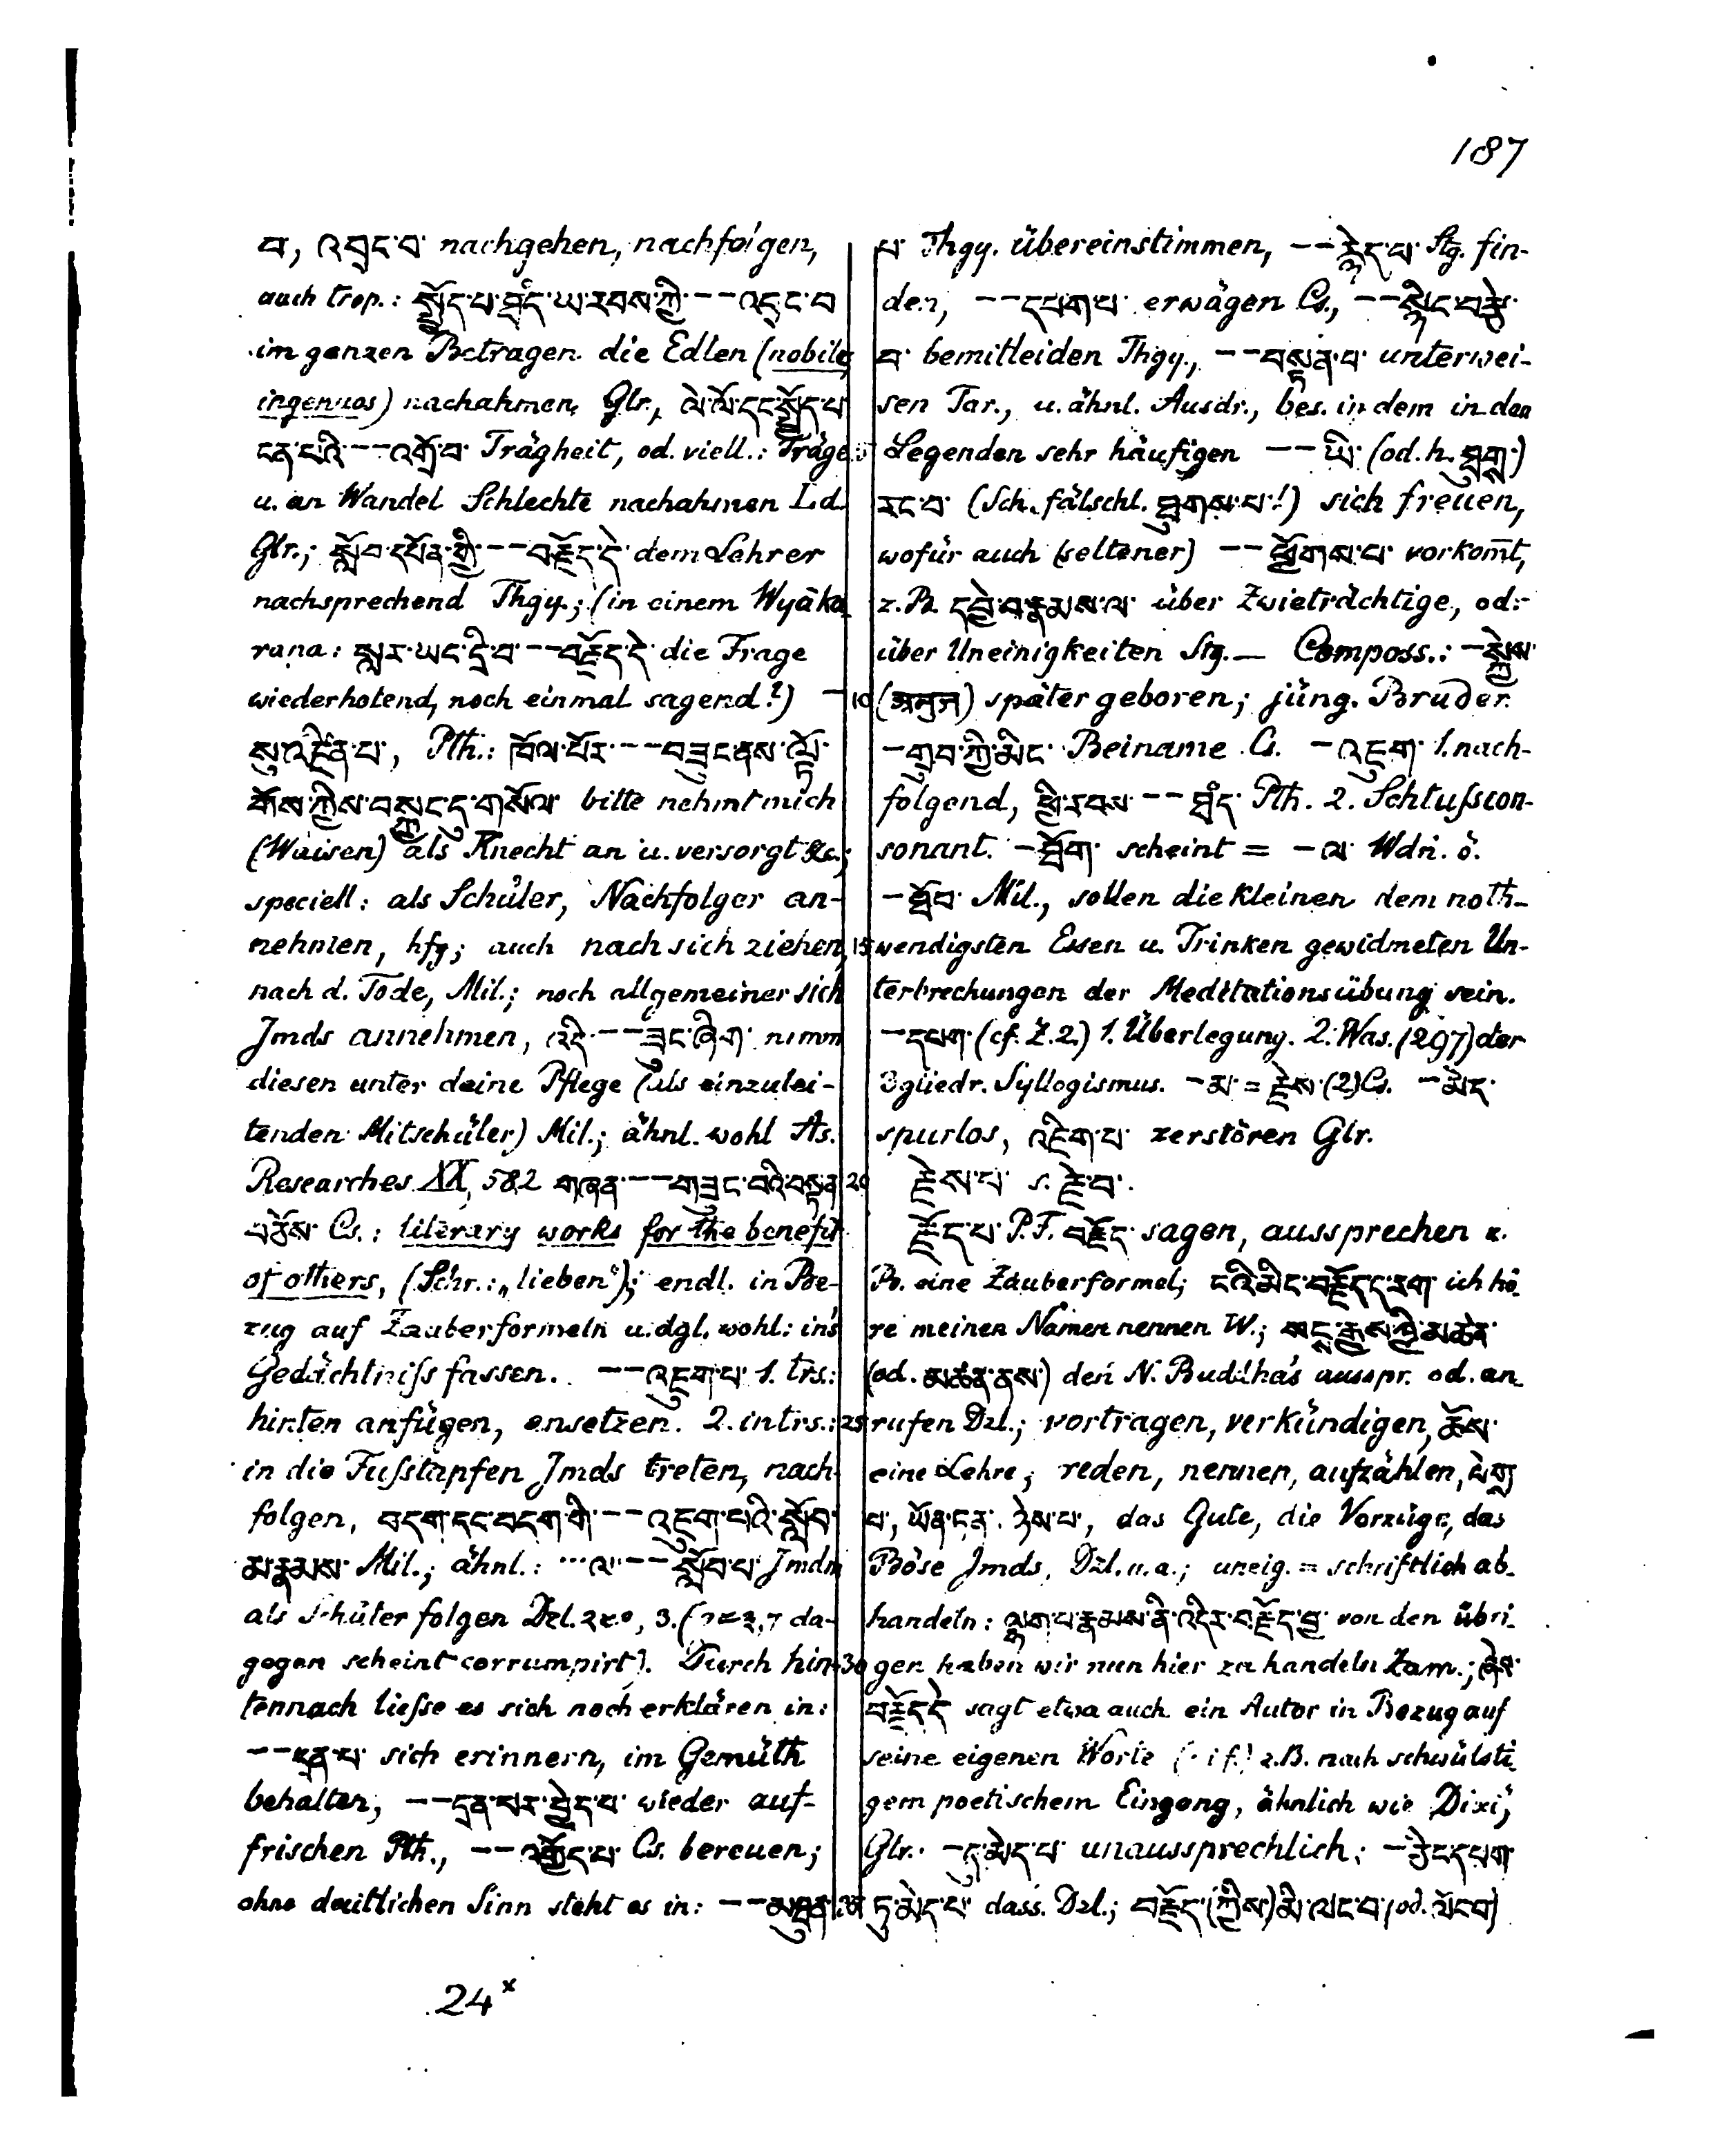 187
བ, འབྲང་བ་ nachgehen, nachfolgen,
auch trop.: སྤྱོད་པ་ ཡ་རབས་ཀྱི་ -- འདྲང་བ
im ganzen Betragen die Edlen (nobiles
ingenuos) nachahmen, Glr., ལེ་ལོ་དང་སྤྱོད་པ
ངན་པའི་ -- འགྲོ་བ་ Trägheit, od. viell.: Träge
u. an Wandel Schlechte nachahmen Ld.
Glr.; སློབ་དཔོན་གྱི་ -- བརྗོད་དེ་ dem Lehrer
nachsprechend Thgy.; (in einem Wyāka
rana: སླར་ཡང་དྲི་བ་ -- བརྗོད་དེ་ die Frage
wiederholend, noch einmal sagend?) –
སུ་འཛིན་པ་, Pth.: ཁོལ་པོར་ -- བཟུང་ནས་ལྟོ་
གོས་ཀྱིས་བསྐྱང་དུ་གསོལ་ bitte nehmt mich
(Waisen) als Knecht an u. versorgt &c.;
speciell: als Schüler, Nachfolger an-
nehmen, hfg; auch nach sich ziehen,
nach d. Tode, Mil.; noch allgemeiner sich
Jmds annehmen, འདི་ -- ཟུང་ཞིག་ nimm
diesen unter deine Pflege (als einzulei-
tenden Mitschüler) Mil.; ähnl. wohl As.
Researches XX, 582 གཞན་ -- གཟུང་བའི་བསྟན
བཅོས་ Cs.: literary works for the benefit
of others, (Schr.: „lieben“); endl. in Be-
zug auf Zauberformeln u. dgl. wohl: ins
Gedächtniſs fassen. -- འཇུག་པ་ 1. trs.:
hinten anfügen, ansetzen. 2. intrs.:
in die Fuſstapfen Jmds treten, nach-
folgen, བདག་དང་བདག་གི་ -- འཇུག་པའི་སློབ་
མ་རྣམས་ Mil.; ähnl.: ...ལ་ -- སློབ་པ་ Jmdm
als Schüler folgen Dzl. , 3. ( da-
gegen scheint corrumpirt). Durch hin-
tennach lieſse es sich noch erklären in:
-- དྲན་པ་ sich erinnern, im Gemüth
behalten, -- དྲན་པར་བྱེད་པ་ wieder auf-
frischen Pth., -- འགྱོད་པ་ Cs. bereuen;
ohne deutlichen Sinn steht es in: -- མཐུན་
པ་ Thgy. übereinstimmen, -- རྙེད་པ་ Stg. fin-
den, -- དཔག་པ་ erwägen Cs., -- སྙིང་བརྩེ་
བ་ bemitleiden Thgy., -- བསྟན་པ་ unterwei-
sen Tar., u. ähnl. Ausdr., bes. in dem in den
5 Legenden sehr häufigen -- ཡི་ (od. h. ཐུགས་)
རང་བ་ (Sch. fälschl. ཐུགས་པ་!) sich freuen,
wofür auch (seltener) -- ཕྱོགས་པ་ vorkomt,
z. B. དབྱེ་བ་རྣམས་ལ་ über Zwieträchtige, od.
über Uneinigkeiten Stg. — Composs.: – སྐྱེས་
10 (अनुज) später geboren; jüng. Bruder.
– གྲུབ་ཀྱི་མིང་ Beiname Cs. – འཇུག་ 1. nach-
folgend, ཕྱི་རབས་ -- Pth. 2. Schluſscon-
sonant. – ཐོག་ scheint = – ལ་ Wdn. ö.
– ཐོབ་ Mil., sollen die kleinen dem noth-
15 wendigsten Essen u. Trinken gewidmeten Un-
terbrechungen der Meditationsübung sein.
– དཔག་ (cf. Z. 2.) 1. Überlegung. 2. Was. (297) der
3gliedr. Syllogismus. – མ་ = རྗེས་ (2) Cs. – མེད་
spurlos, འཇིག་པ་ zerstören Glr.
20 རྗེས་པ་ s. རྗེ་བ་.
རྗོད་པ་ P. F. བརྗོད་ sagen, aussprechen z.
B. eine Zauberformel; ངའི་མིང་བརྗོད་ད་རག་ ich hö-
re meinen Namen nennen W.; སངྶ་རྒྱས་ཀྱི་མཚན་
(od. མཚན་ནས་) den N. Buddha's ausspr. od. an-
25 rufen Dzl.; vortragen, verkündigen, ཆོས་
eine Lehre; reden, nennen, aufzählen, ལེགས
པ་, ཡོན་ཏན་ ཉེས་པ་, das Gute, die Vorzüge, das
Böse Jmds, Dzl. u. a.; uneig. = schriftlich ab-
handeln: ལྷག་པ་རྣམས་ནི་འདིར་བརྗོད་བྱ་ von den übri-
30 gen haben wir nun hier zu handeln Zam.; ཞེས་
བརྗོད་དེ་ sagt etwa auch ein Autor in Bezug auf
seine eigenen Worte (. i f.) z. B. nach schwülsti-
gem poetischem Eingang, ähnlich wie Dixi;
Glr. – དུ་མེད་པ་ unaussprechlich; – ཅིང་དཔག་
ཏུ་མེད་པ་ dass. Dzl.; བརྗོད་ (ཀྱིས་) མི་ལང་བ་ (od. ལོང་བ)
24ˣ